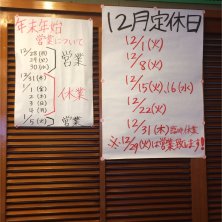 年末年始
営業について
12/28(月)
29(火)
30(水)
営業
12/31(木)
1/1(金)
2(土)
3(日)
4(月)
休業
1/5(火) 営業
12月定休日
12/1(火)
12/8(火)
12/15(火),16(水)
12/22(火)
12/31(木)臨時休業
※12/29(火)は営業致します!